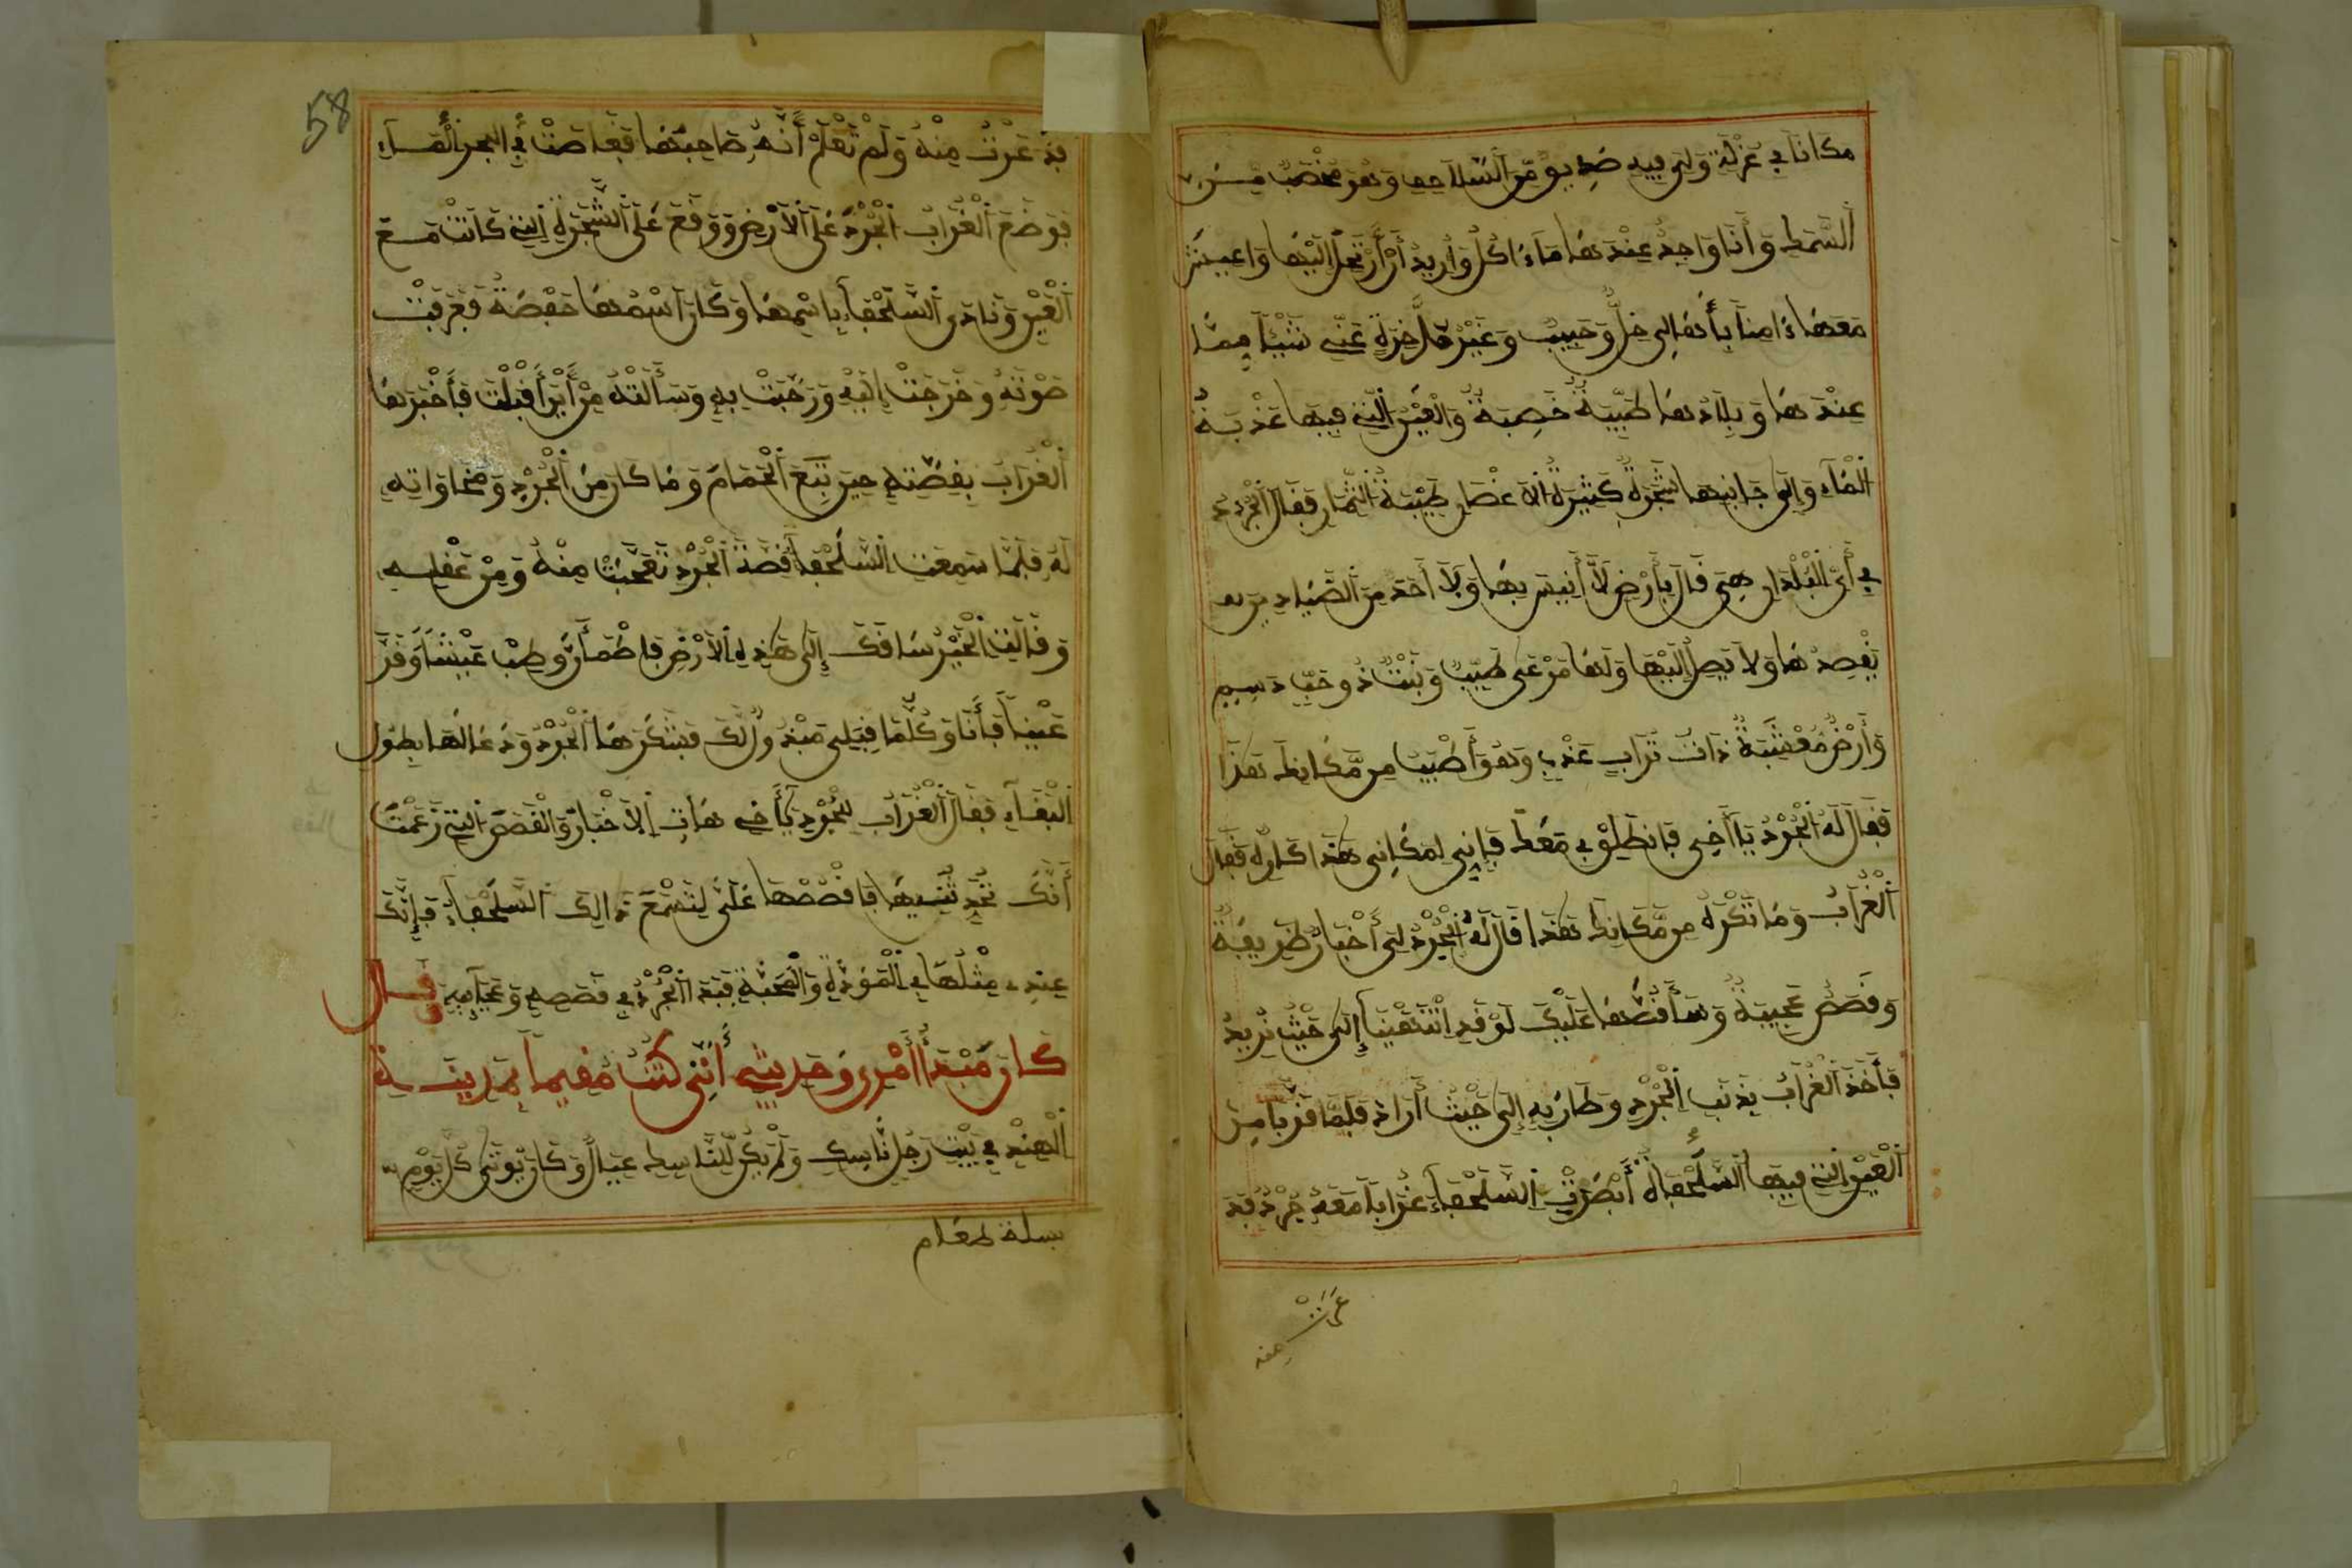 مكانا في عزلة ولي فيه صديق من السلاحف وهو مخصب من
السمك وأنا واجد عندها ما ءاكل وأريد أن أرتحل إليها وأعيش
معها ءامنا بأنها لي خل وحبيب وغير مدّخرة عني شيئا مما
عندها وبلادها طيبة خصبة والعين التي فيها عذبة
الماء وإلى جانبها شجرة كثيرة الاغصان طيبة الثمار فقال الجرد
في أي البلدان هي قال بأرض لا أنيس بها ولا أحد من الصيادين
يقصدها ولا يصل إليها ولها مرعى طيب ونبت ذو حب دسيم
وأرض معشبة ذات تراب عذب وهو أطيب من مكانك هذا
فقال له الجرد يا أخي فانطلق بي معك فإني لمكاني هذا كاره فقال
الغراب وما تكره من مكانك هذا قال له الجرد لي أخبار ظريفة
وقصص عجيبة وسأقصها عليك لو قد انتهينا إلى حيث نريد
فأخذ الغراب بذنب الجرد وطار به إلى حيث أراد فلما قربا من
العين التي فيها السلحفاة أبصرت السلحفاء غرابا معه جرد فذ
عرت منه
58
فذعرت منه ولم تعلم أنه صاحبها فغاصت في البحر الماء
فوضع الغراب الجرد على الارض ووقع على الشجرة التي كانت مع
العين ونادى السلحفاء باسمها وكان اسمها حفصة فعرفت
صوته وخرجت إليه ورحبت به وسألته من أين أقبلت فأخبرها
الغراب بقصته حين تبع الحمام وما كان من الجرد ومخاواته
له فلما سمعت السلحفاء قصة الجرد تعجبت منه ومن عقله
وقالت الخير ساقك إلى هذه الارض فاطمأن وطب عيشا وقر
عينا فأنا وكلما قبلي مبذول لك فشكرها الجرد ودعا لها بطول
البقاء فقال الغراب للجرد يأخي هات الاخبار والقصص التي زعمت
أنك تحدثنيها فاقصصها علي لتسمع ذالك السلحفاء فإنك
عندي مثلها في المودة والمحبة فبدا الجرد في قصصه وعجايبه قال
كان مبتدأ أمري وحديثي أنني كنت مقيما بمدينة
الهند في بيت رجل ناسك ولم يكن للناسك عيال وكان يوتى كل يوم
بسلة طعام